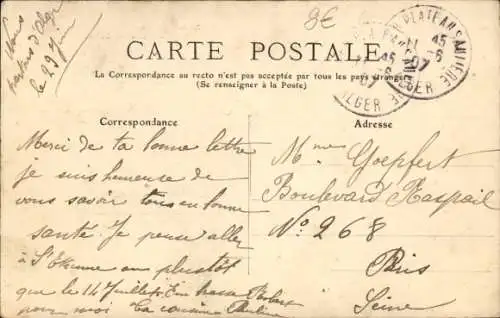 Nous
partons d'Alger
le 29 Juin
8€
PLATEAU SAULIÈRE
11 45
-6
07
ALGER
CARTE POSTALE
La Correspondance au recto n'est pas acceptée par tous les pays étrangers
(Se renseigner à la Poste)
Correspondance
Adresse
Merci de ta bonne lettre
je suis heureuse de
vous savoir tous en bonne
santé. Je pense aller
à St Etienne au plustôt
que le 14 Juillet. Embrasse
pour moi la cousine Pauline
Mme Goepfert
Boulevard Raspail
No 268
Paris
Seine